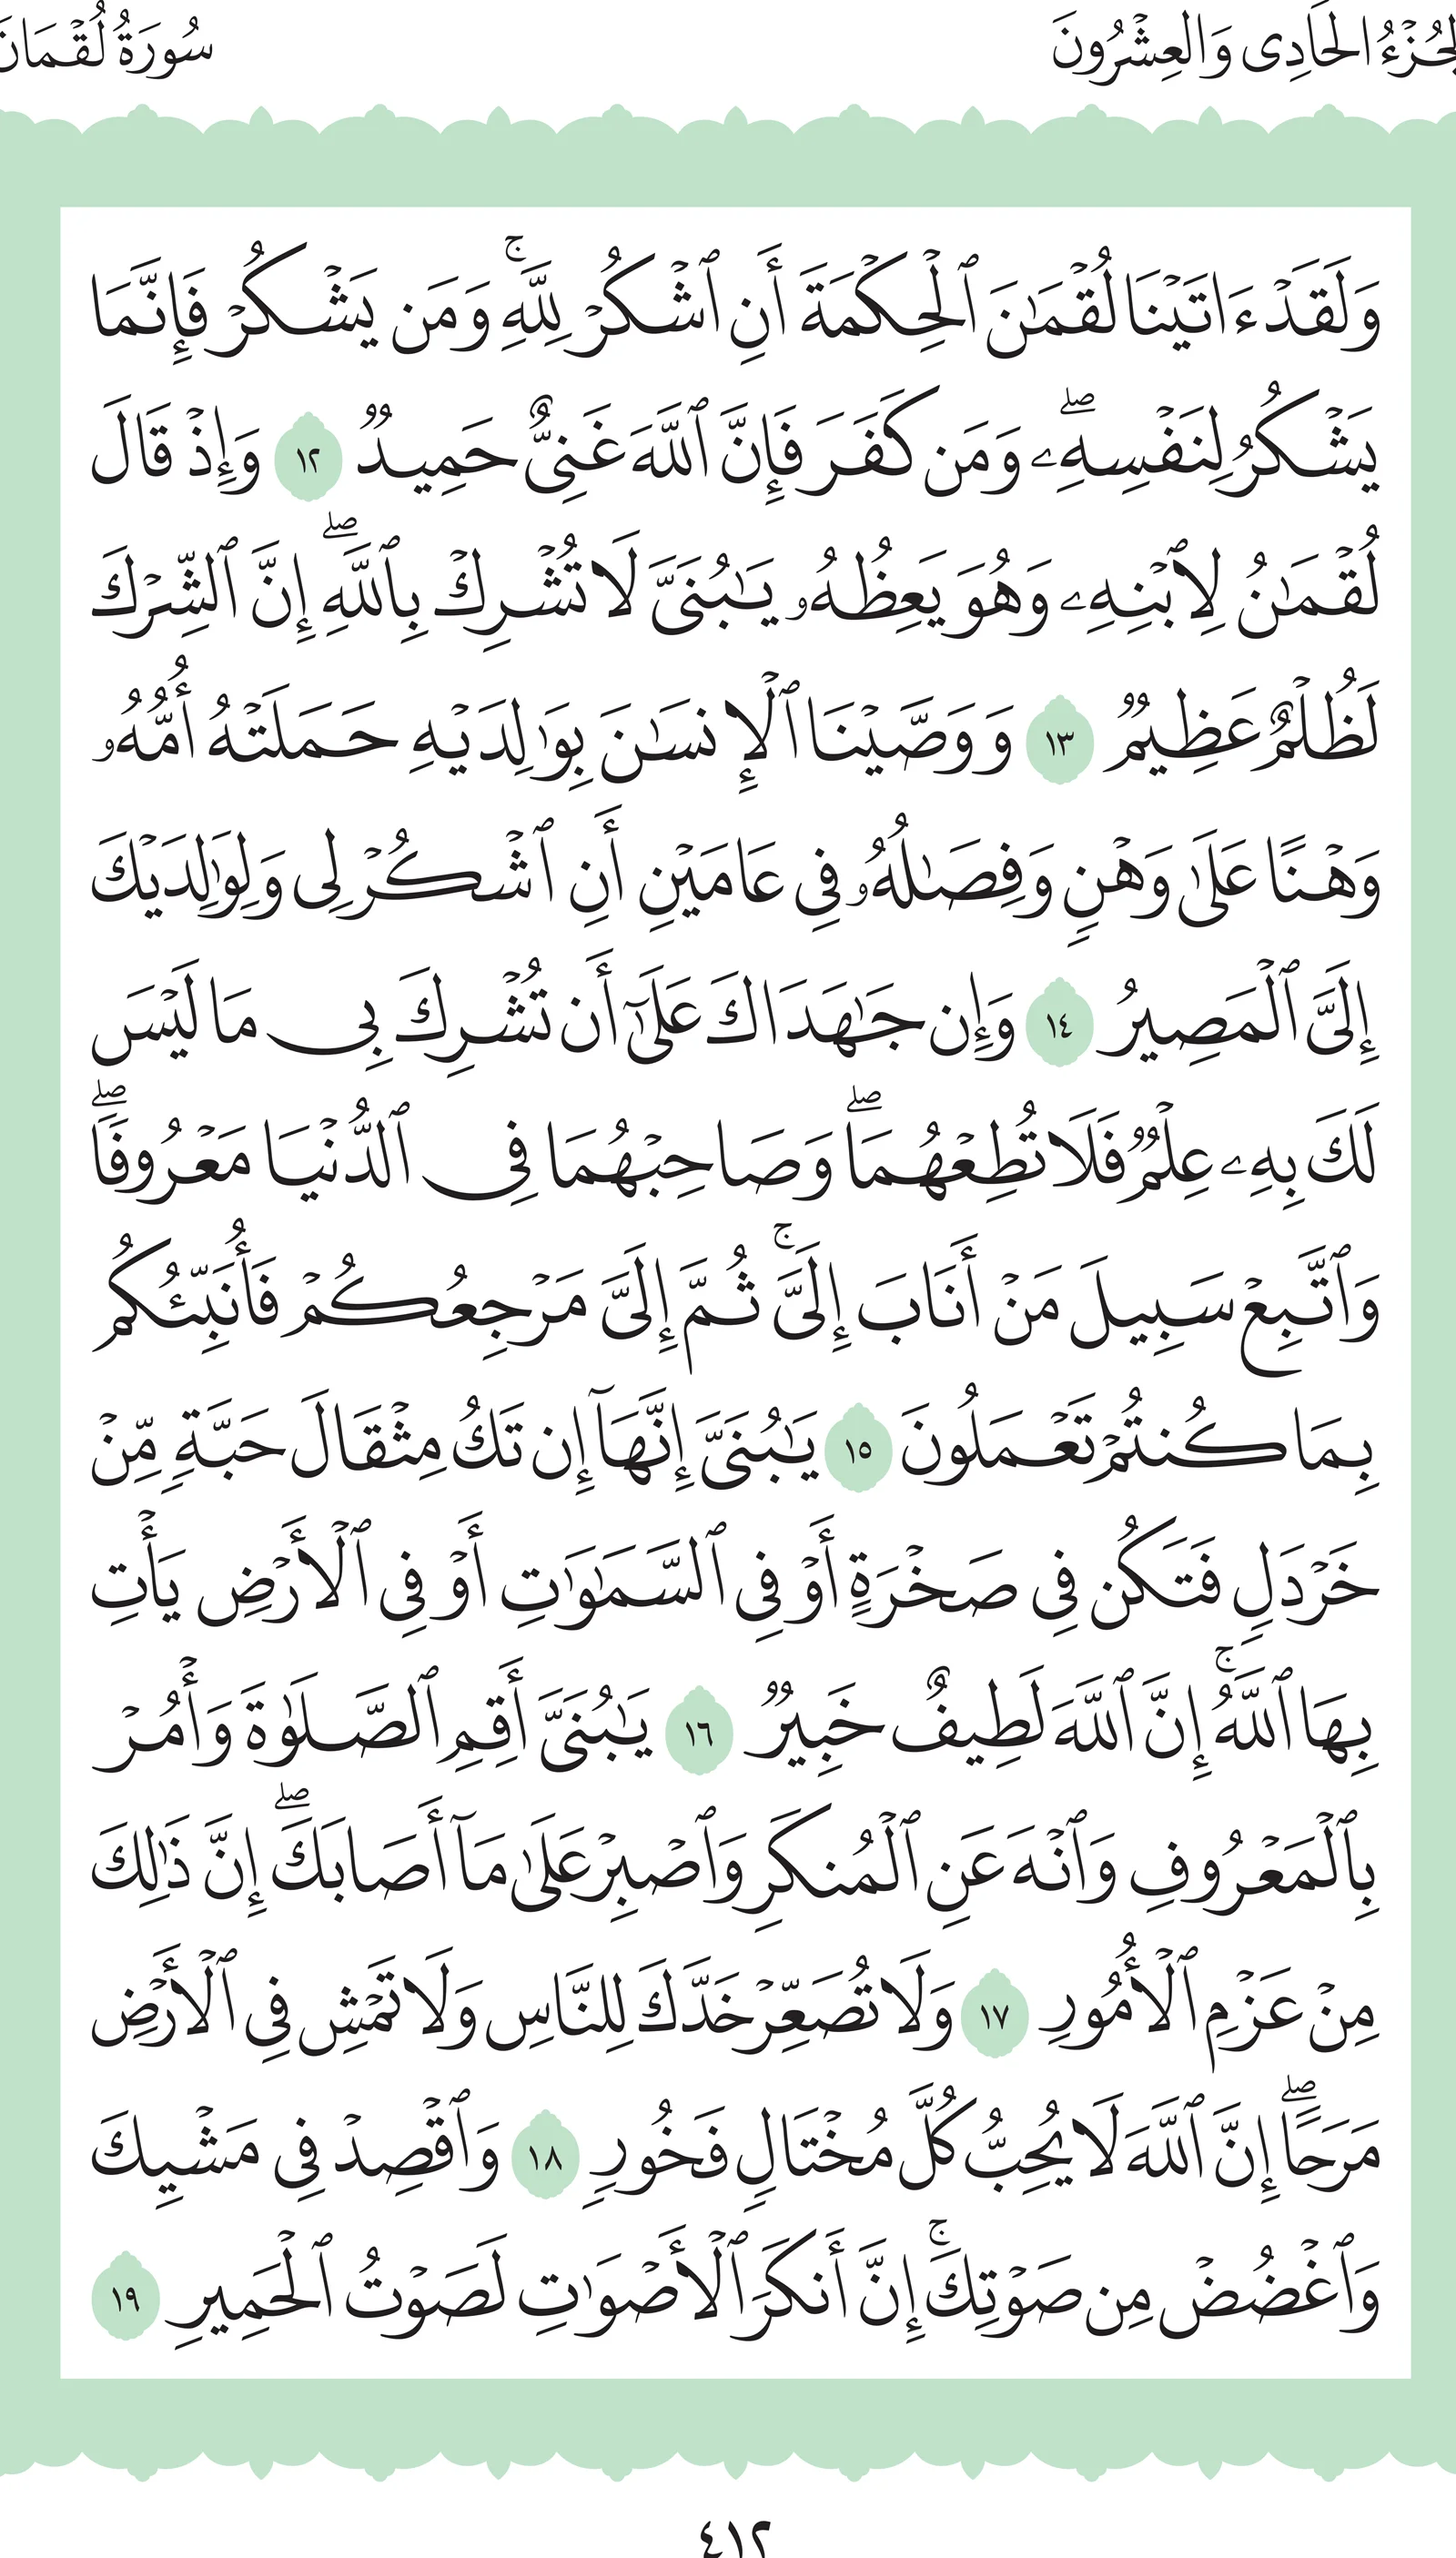 الجُزْءُ الحَادِي وَالعِشْرُونَ
سُورَةُ لُقْمَان
وَلَقَدْ ءَاتَيْنَا لُقْمَٰنَ ٱلْحِكْمَةَ أَنِ ٱشْكُرْ لِلَّهِۚ وَمَن يَشْكُرْ فَإِنَّمَا
يَشْكُرُ لِنَفْسِهِۦۖ وَمَن كَفَرَ فَإِنَّ ٱللَّهَ غَنِىٌّ حَمِيدٌ ١٢ وَإِذْ قَالَ
لُقْمَٰنُ لِٱبْنِهِۦ وَهُوَ يَعِظُهُۥ يَٰبُنَىَّ لَا تُشْرِكْ بِٱللَّهِۖ إِنَّ ٱلشِّرْكَ
لَظُلْمٌ عَظِيمٌ ١٣ وَوَصَّيْنَا ٱلْإِنسَٰنَ بِوَٰلِدَيْهِ حَمَلَتْهُ أُمُّهُۥ
وَهْنًا عَلَىٰ وَهْنٍ وَفِصَٰلُهُۥ فِى عَامَيْنِ أَنِ ٱشْكُرْ لِى وَلِوَٰلِدَيْكَ
إِلَىَّ ٱلْمَصِيرُ ١٤ وَإِن جَٰهَدَاكَ عَلَىٰٓ أَن تُشْرِكَ بِى مَا لَيْسَ
لَكَ بِهِۦ عِلْمٌ فَلَا تُطِعْهُمَاۖ وَصَاحِبْهُمَا فِى ٱلدُّنْيَا مَعْرُوفًاۖ
وَٱتَّبِعْ سَبِيلَ مَنْ أَنَابَ إِلَىَّۚ ثُمَّ إِلَىَّ مَرْجِعُكُمْ فَأُنَبِّئُكُم
بِمَا كُنتُمْ تَعْمَلُونَ ١٥ يَٰبُنَىَّ إِنَّهَآ إِن تَكُ مِثْقَالَ حَبَّةٍ مِّنْ
خَرْدَلٍ فَتَكُن فِى صَخْرَةٍ أَوْ فِى ٱلسَّمَٰوَٰتِ أَوْ فِى ٱلْأَرْضِ يَأْتِ
بِهَا ٱللَّهُۚ إِنَّ ٱللَّهَ لَطِيفٌ خَبِيرٌ ١٦ يَٰبُنَىَّ أَقِمِ ٱلصَّلَوٰةَ وَأْمُرْ
بِٱلْمَعْرُوفِ وَٱنْهَ عَنِ ٱلْمُنكَرِ وَٱصْبِرْ عَلَىٰ مَآ أَصَابَكَۖ إِنَّ ذَٰلِكَ
مِنْ عَزْمِ ٱلْأُمُورِ ١٧ وَلَا تُصَعِّرْ خَدَّكَ لِلنَّاسِ وَلَا تَمْشِ فِى ٱلْأَرْضِ
مَرَحًاۖ إِنَّ ٱللَّهَ لَا يُحِبُّ كُلَّ مُخْتَالٍ فَخُورٍ ١٨ وَٱقْصِدْ فِى مَشْيِكَ
وَٱغْضُضْ مِن صَوْتِكَۚ إِنَّ أَنكَرَ ٱلْأَصْوَٰتِ لَصَوْتُ ٱلْحَمِيرِ ١٩
٤١٢